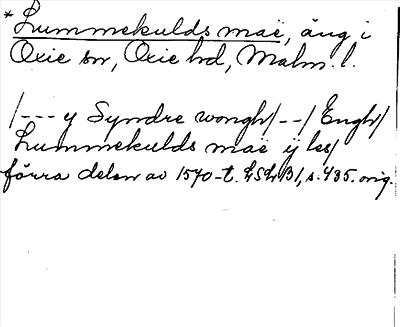 * Lummekulds maë, äng i
Oxie sn, Oxie hd, Malm. l.
/--- y Syndre wongh/--/ Engh/
Lummekulds maë ÿ les/
förra delen av 1540-t. LSLB1, s. 435. orig.